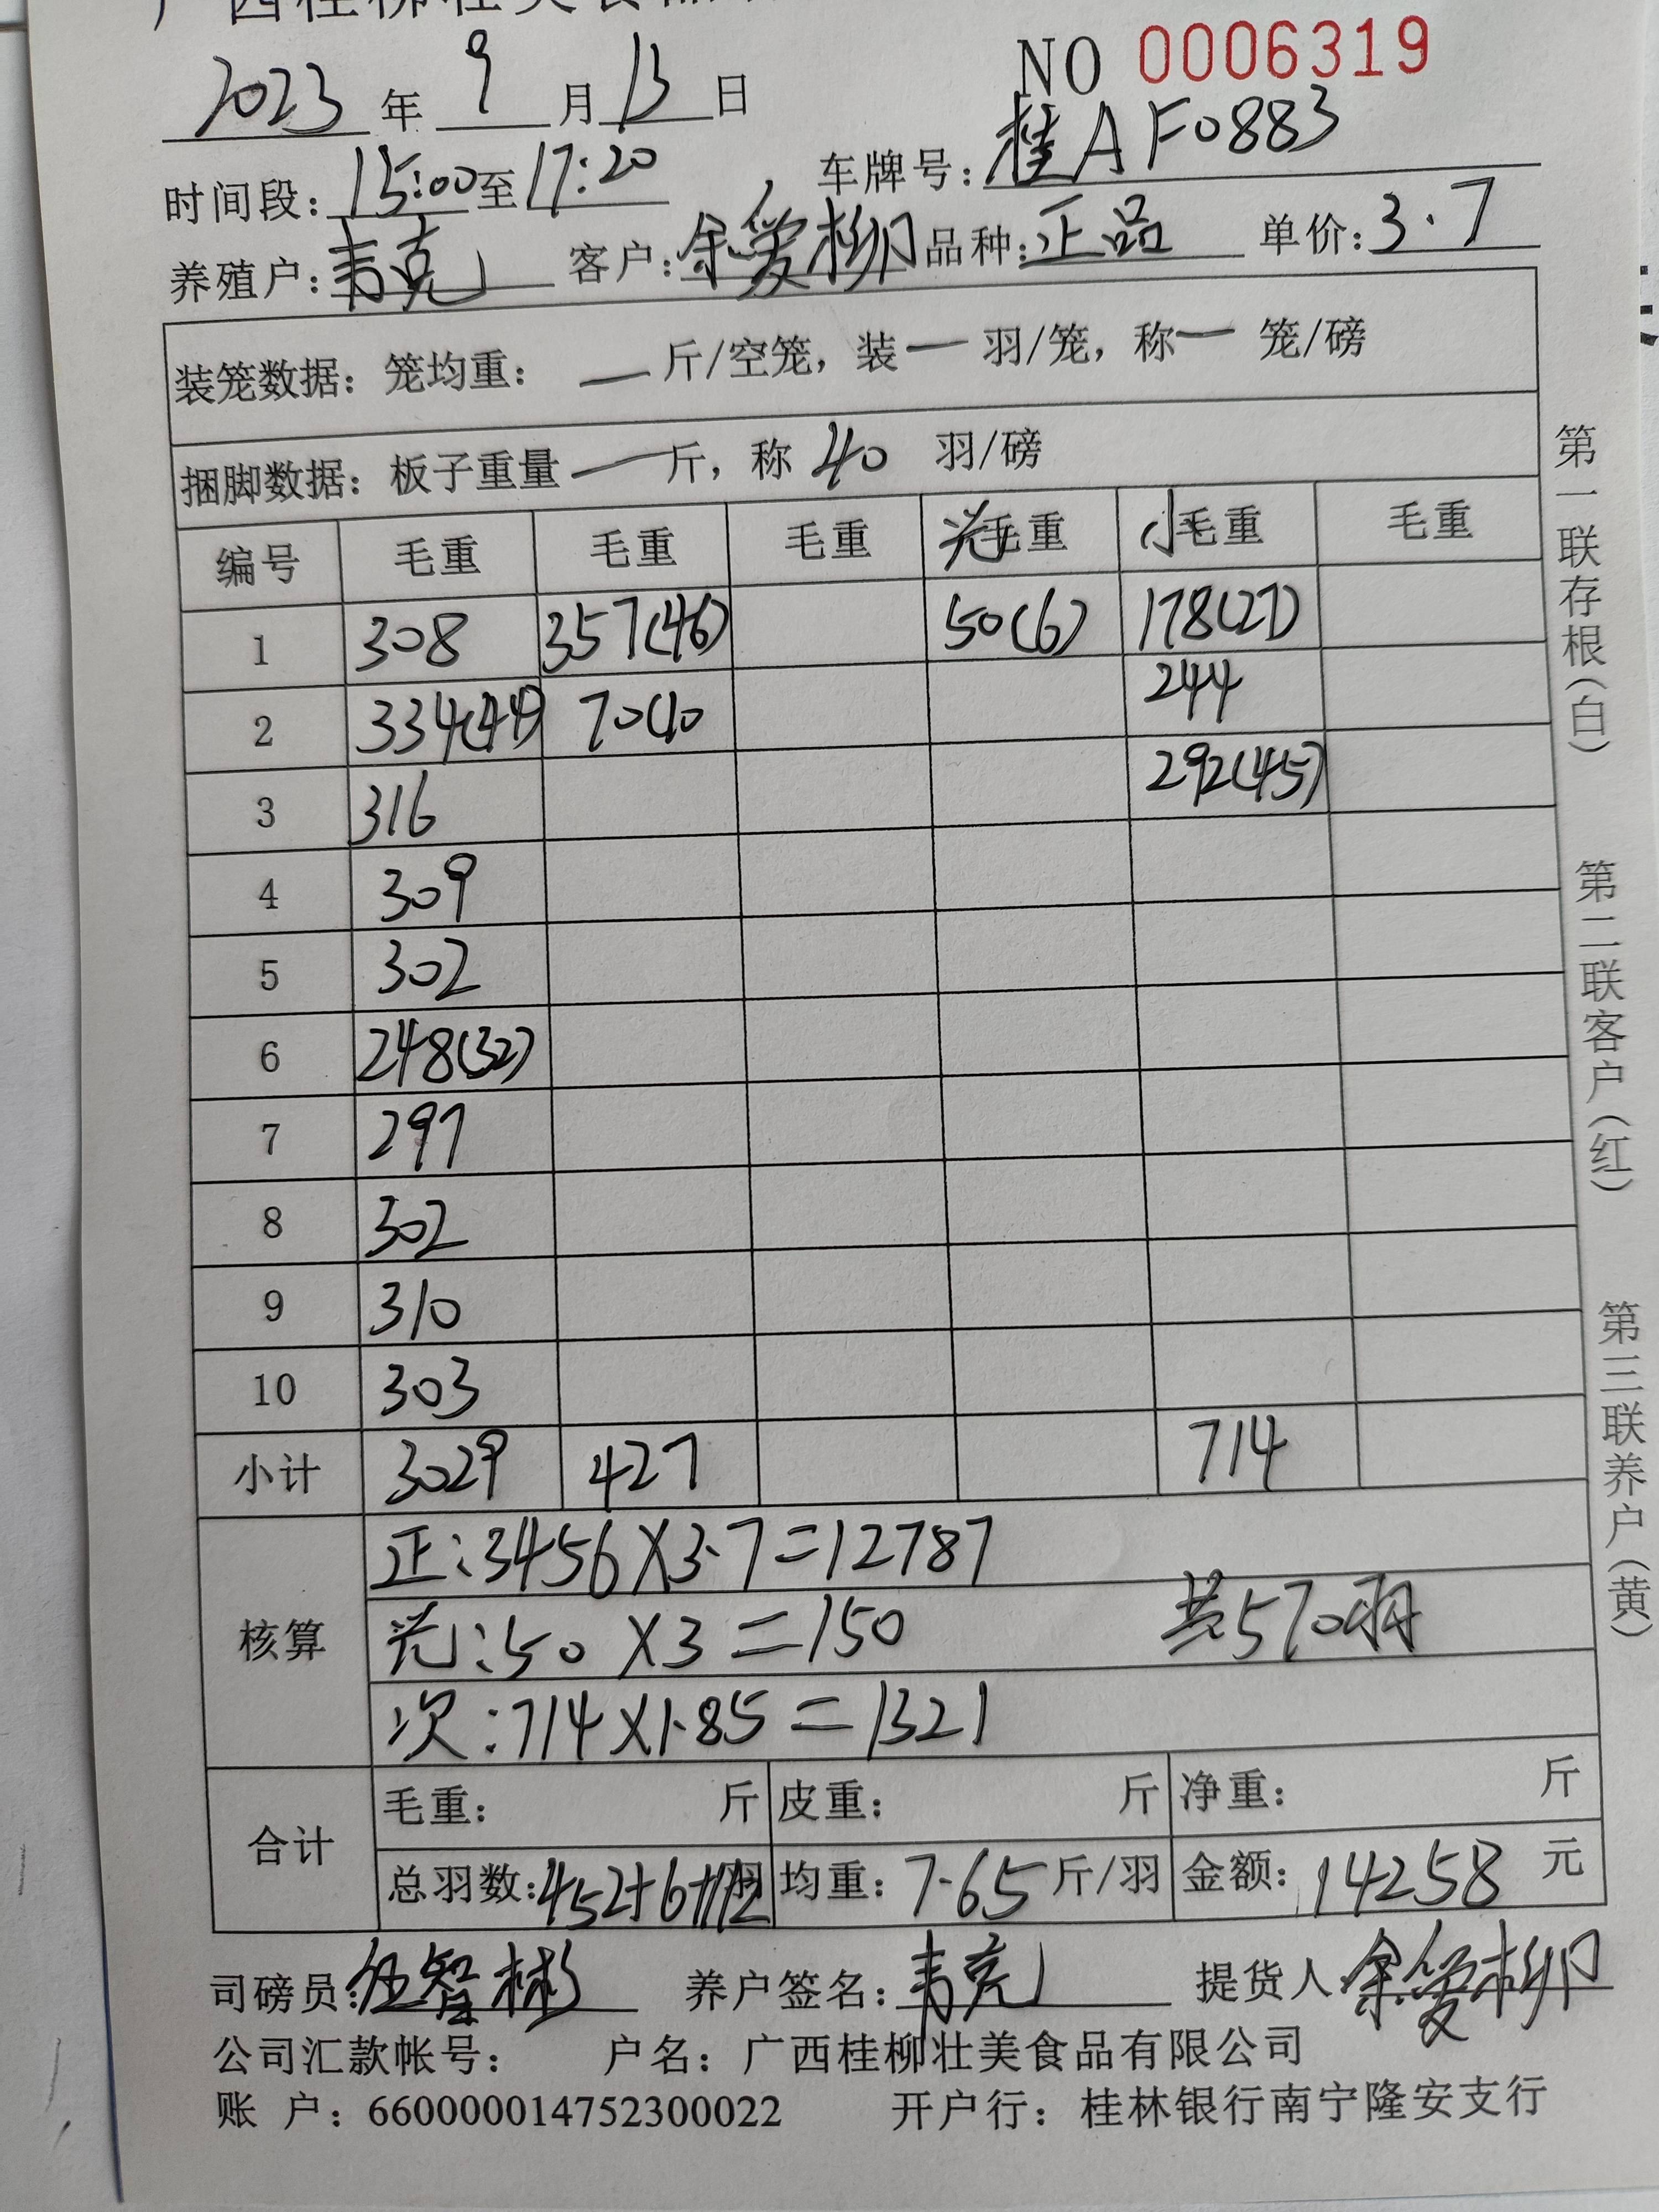 广西桂柳壮美食品
NO 0006319
2023 年 9 月 13 日
时间段: 15:00 至 17:20 车牌号: 桂AF0883
养殖户: 韦克 客户: 余爱柳 品种: 正品 单价: 3.7
装笼数据: 笼均重: — 斤/空笼, 装 — 羽/笼, 称 — 笼/磅
捆脚数据: 板子重量 — 斤, 称 40 羽/磅
编号 毛重 毛重 毛重 光毛重 小毛重 毛重
1 308 357(46) 50(6) 178(27)
2 334(44) 70(10 244
3 316 292(45)
4 309
5 302
6 248(32)
7 297
8 302
9 310
10 303
小计 3029 427 714
核算
正:3456X3.7=12787
光:50X3=150 共570羽
次:714X1.85=1321
合计
毛重: 斤 皮重: 斤 净重: 斤
总羽数: 452+6+112 羽 均重: 7.65 斤/羽 金额: 14258 元
司磅员: 伍智彬 养户签名: 韦克 提货人: 余爱柳
公司汇款帐号: 户名: 广西桂柳壮美食品有限公司
账 户: 660000014752300022 开户行: 桂林银行南宁隆安支行
第一联存根(白)
第二联客户(红)
第三联养户(黄)